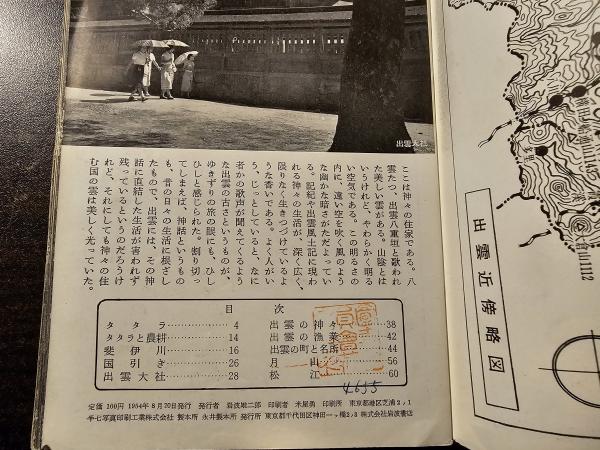 出雲大社
ここは神々の住家である。八
雲たつ、出雲八重垣と歌われ
た美しい雲がある。山陰とは
いうけれど、やわらかい明る
い空気である。この明るさの
内に、遠い空を吹く風のよう
な幽かな暗さがただよってい
る。記紀や出雲風土記に現わ
れる神々の生活が、深く広く、
限りなく生きつづけているよ
うな香いである。よく人がい
う、じっとしていると、なに
者かの歌声が聞えてくるよう
な出雲の古さというものが、
ゆきずりの旅の眼にも、ひし
ひしと感じられた。割り切っ
てしまえば、神話というもの
も、昔の日々の生活に根ざし
たもので、出雲には、その神
話に直結した生活が害われず
残っているというのだろうけ
れど、それにしても神々の住
む国の雲は美しく光っていた。
目次
タタラ 4
タタラと農耕 14
斐伊川 16
国引き 26
出雲大社 28
出雲の神々 38
出雲の漁業 42
出雲の町と名所 44
月山 56
松江 60
4655
定価100円 1954年8月20日発行 発行者 岩波雄二郎 印刷者 米屋勇 印刷所 東京都港区芝浦2ノ1
半七写真印刷工業株式会社 製本所 永井製本所 発行所 東京都千代田区神田一ツ橋2ノ3 株式会社岩波書店
出雲近傍略図
1112